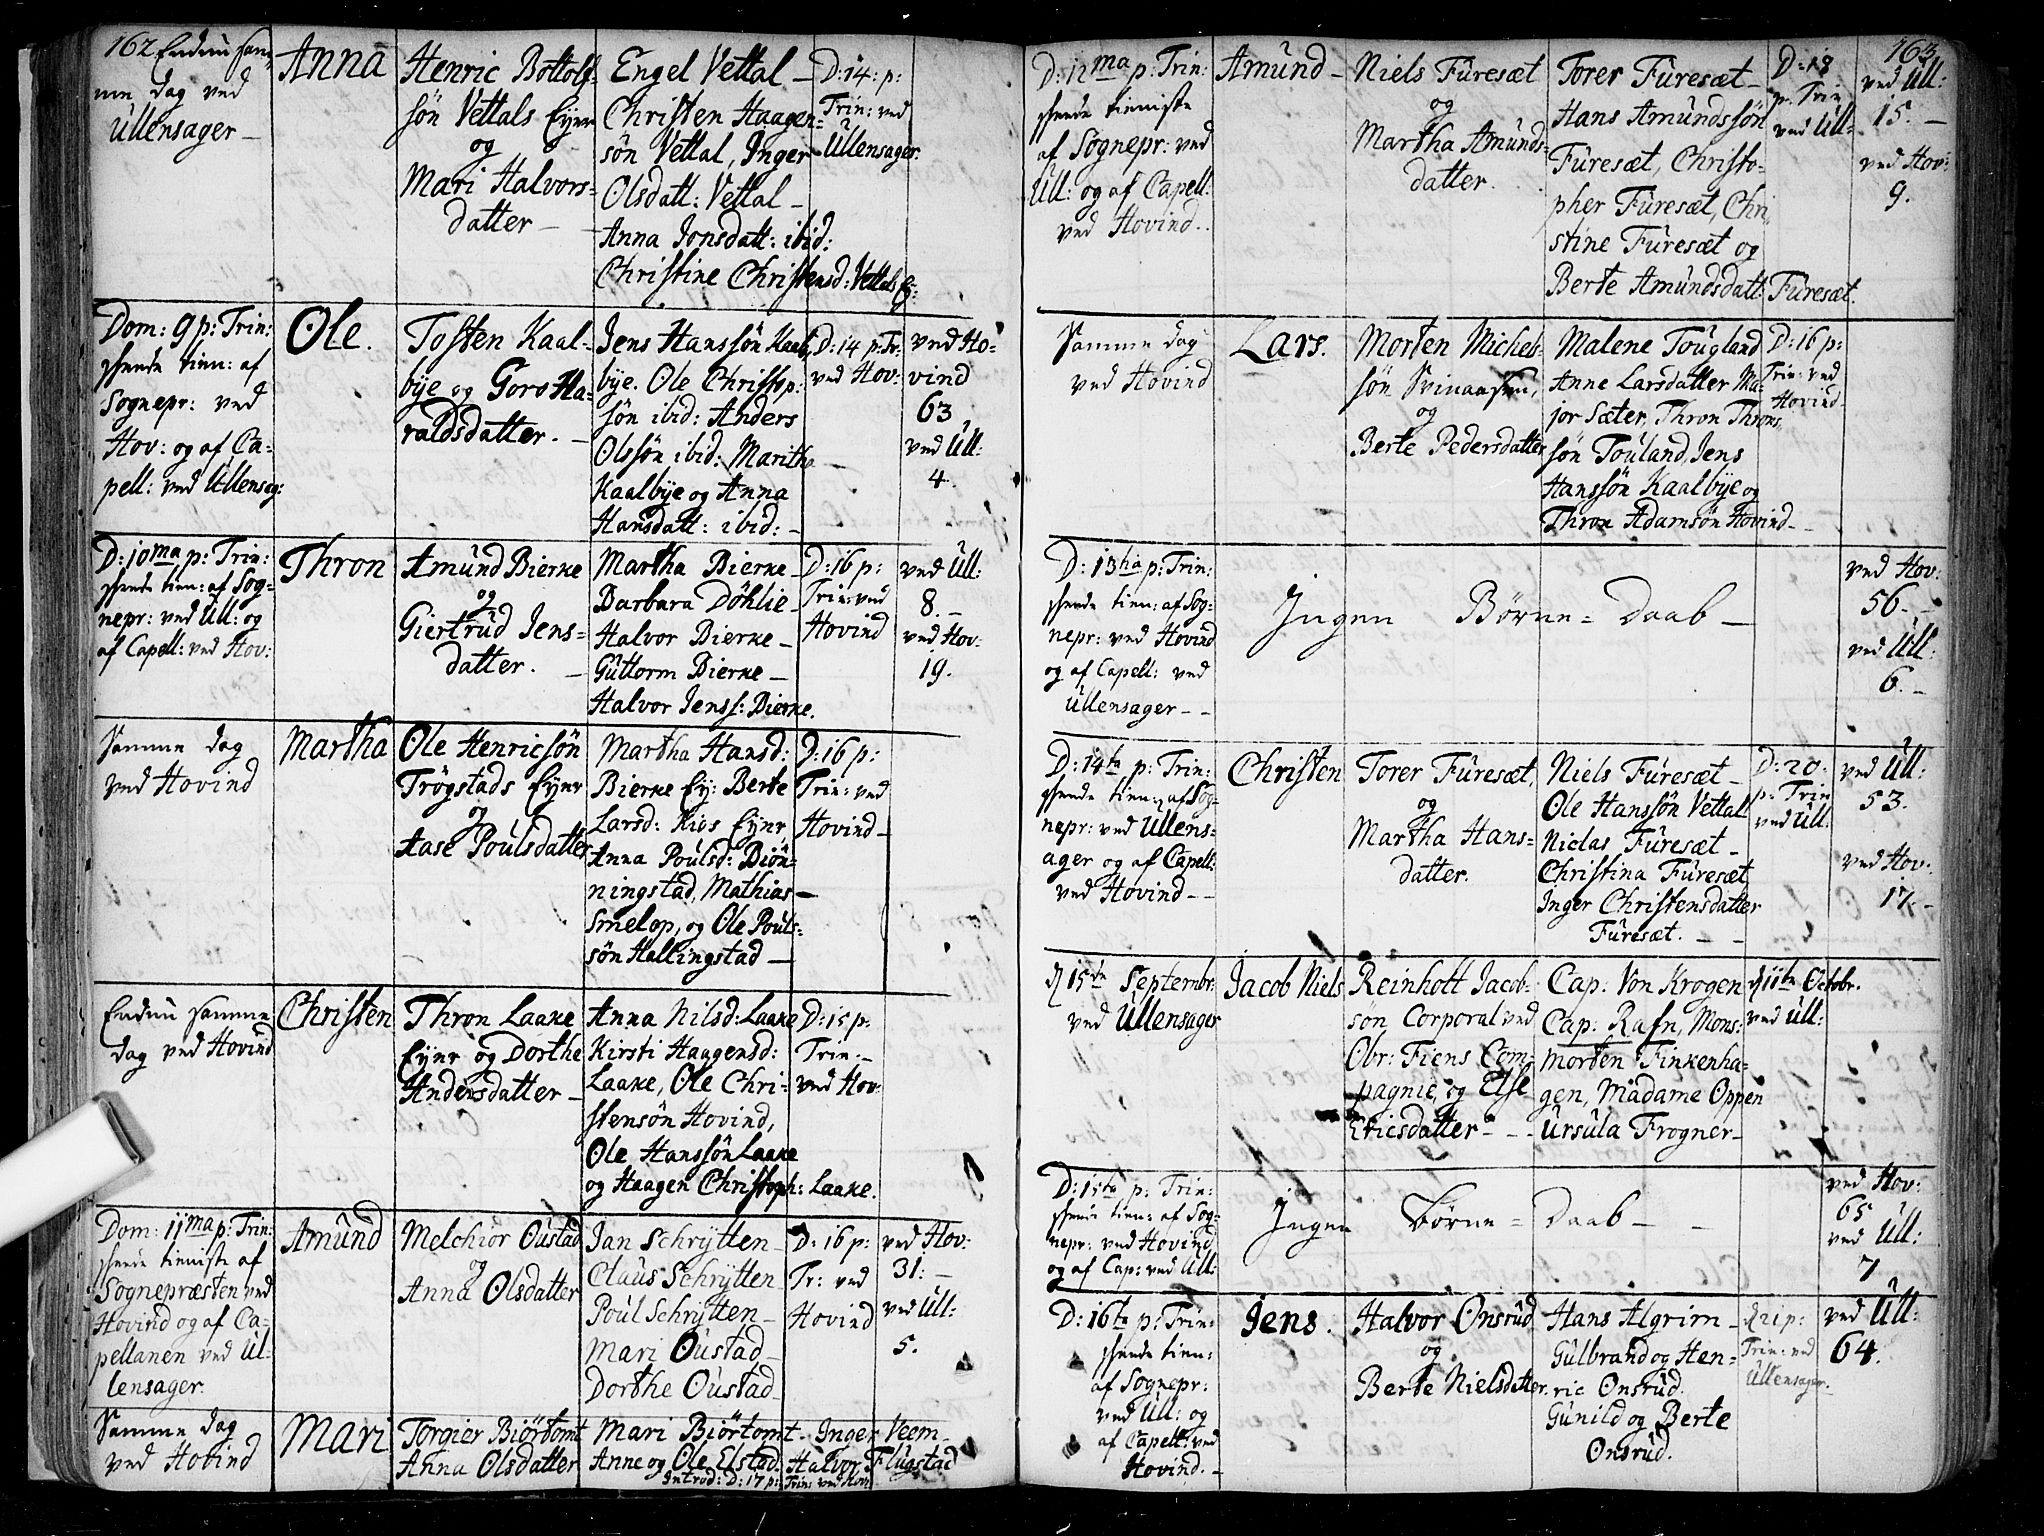 162 Endnu sam-
me dag ved
Ullensager —
Anna
Henric Bottolf-
sön Vettals Eynr
og
Mari Halvors-
datter —
Engel Vettal —
Christen Haagen-
sön Vettal, Inger
Olsdatt: Vettal —
Anna Jonsdatt: ibid:
Christine Christensd: Vettals Ey:
D: 14: p:
Trin: ved
Ullensager.
Dom: 9 p: Trin:
tien: af
Sognepr: ved
Hov: og af Ca-
pell: ved Ullensag:
Ole.
Tosten Kaal-
bye og Goro Ha-
raldsdatter. —
Jens Hanssön Kaal-
bye. Ole Christop:
sön ibid: Anders
Olssön ibid: Maritha —
Kaalbye og Anna
Hansdatt: ibid: —
D: 14 p: Tr:
ved Hov:
ved Ho-
vind
63
ved Ull:
4.
D: 10ma p: Trin:
tien: af Sog-
nepr: ved Ull: og
af Capell: ved Hov:
Thron
Amund Bierke
og
Giertrud Jens-
datter. —
Martha Bierke —
Barbara Döhlie —
Halvor Bierke —
Guttorm Bierke —
Halvor Jenss: Bierke.
D: 16 p:
Trin: ved
Hovind
ved Ull:
8. —
ved Hov:
19.
Samme dag
ved Hovind
Martha
Ole Henricsön
Trögstads Eynr
og
Aase Poulsdatter
Martha Hansd:
Bierke Ey: Berte
Larsd: Kios Eynr
Anna Poulsd: Biön-
ningstad, Mathias —
Smelop, og Ole Pouls-
sön Hallingstad —
D: 16 p:
Trin: ved
Hovind —
Endnu samme
dag ved Hovind
Christen
Thron Laake
Eynr og Dorthe
Andersdatter —
Anna Nilsd: Laake
Kirsti Haagensd:
Laake, Ole Chri-
stensön Hovind,
Ole Hanssön Laake
og Haagen Christoph: Laake.
D: 15 p:
Trin: —
ved Hov:
Dom: 11ma p: Trin:
tieniste af
Sognepræsten ved
Hovind og af Ca-
pellanen ved Ul-
lensager.
Amund
Melchior Oustad
og
Anna Olsdatter
Jan Schrÿtten —
Claus Schrÿtten
Poul Schrÿtten —
Mari Oustad —
Dorthe Oustad —
D: 16 p:
Tr: ved
Hovind
ved Hov:
31: —
ved Ull:
5.
Samme dag
ved Hovind
Mari
Torgier Biörtomt
Anna Olsdatter
Mari Biörtomt. Inger Veem —
Anne og Ole Elstad. Halvor Flugstad
Introd: D: 17 p: Trin: ved Hov:
163
D: 12ma p: Trin:
tieniste
af Sognepr: ved
Ull: og af Capell:
ved Hovind.
Amund —
Niels Furesæt
og
Martha Amunds-
datter.
Torer Furesæt —
Hans Amundssön
Furesæt, Christo-
pher Furesæt, Chri-
stine Furesæt og
Berte Amundsdatt: Furesæt.
D: 18
p: Trin
ved Ull:
ved Ull:
15. —
ved Hov:
9.
Samme dag
ved Hovind
Lars.
Morten Michel-
sön Svinaasen,
og
Berte Pedersdatter
Malene Tougland
Anne Larsdatter Ma-
jor Sæter, Thron Throns
sön Touland, Jens
Hanssön Kaalbye og
Thron Adamsön Hovind —
D: 16 p:
Trin: ved
Hovind —
D: 13tia p: Trin:
tien: af Sog-
nepr: ved Hovind
og af Capell: ved
Ullensager —
Ingen Börne-Daab —
ved Hov:
56. —
ved Ull:
6. —
D: 14ta p: Trin:
tien: af Sog-
nepr: ved Ullens-
ager og af Capell:
ved Hovind —
Christen
Torer Furesæt,
og
Martha Hans-
datter.
Niels Furesæt —
Ole Hanssön Vettal
Niclas Furesæt —
Christina Furesæt
Inger Christensdatter
Furesæt. —
D: 20:
p: Trin
ved Ull:
ved Ull:
53.
ved Hov:
17. —
d 15de Septembr:
ved Ullensager
Jacob Niels
Reinhott Jacob-
sön Corporal ved
Obr: Fiens Com-
pagnie, og Else
Ericsdatter —
Cap. Von Krogen
Cap: Rafn, Mons:
Morten Finkenha-
gen, Madame Oppen
Ursula Frogner —
d 11te Octobr.
ved Ull:
D: 15ta p: Trin:
tien: af Sog-
nepr: ved Hovind
og af Cap: ved Ull:
Ingen Börne-Daab —
ved Hov:
65
ved Ull:
7
D: 16ta p: Trin:
tien:
af Sognepr:
ved Ull: og
af Capell: ved
Hovind. —
Jens.
Halvor Onsrud
og
Berte Nielsdatter.
Hans Algrim —
Gulbrand og Hen-
ric Onsrud.
Gunild og Berte
Onsrud.
21 p:
Trin: ved
Ullensager.
ved Ull:
64.